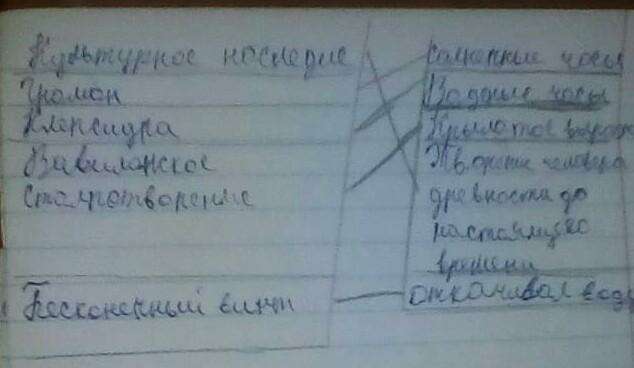 Культурное наследие
Гномон
Клепсидра
Вавилонское
Столпотворение
Бесконечный винт
солнечные часы
Водяные часы
Крылатое выраж
Творение человека
древности до
настоящего
времени
откачивал воду